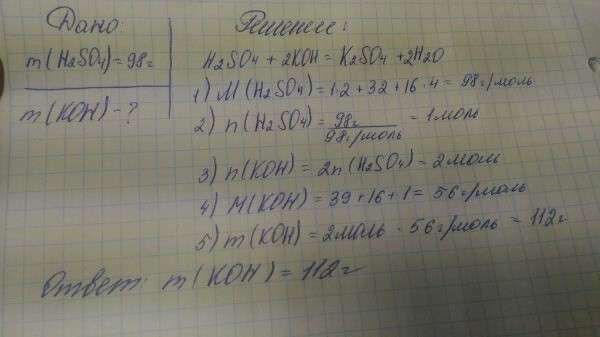 Дано:
m(H₂SO₄)=98г
m(KOH)-?
Решение:
H₂SO₄ + 2KOH = K₂SO₄ + 2H₂O
1) M(H₂SO₄)=1·2+32+16·4=98г/моль
2) n(H₂SO₄)= 98г/98г/моль = 1моль
3) n(KOH)=2n(H₂SO₄)=2моль
4) M(KOH)=39+16+1=56г/моль
5) m(KOH)=2моль·56г/моль=112г
Ответ: m(KOH)=112г